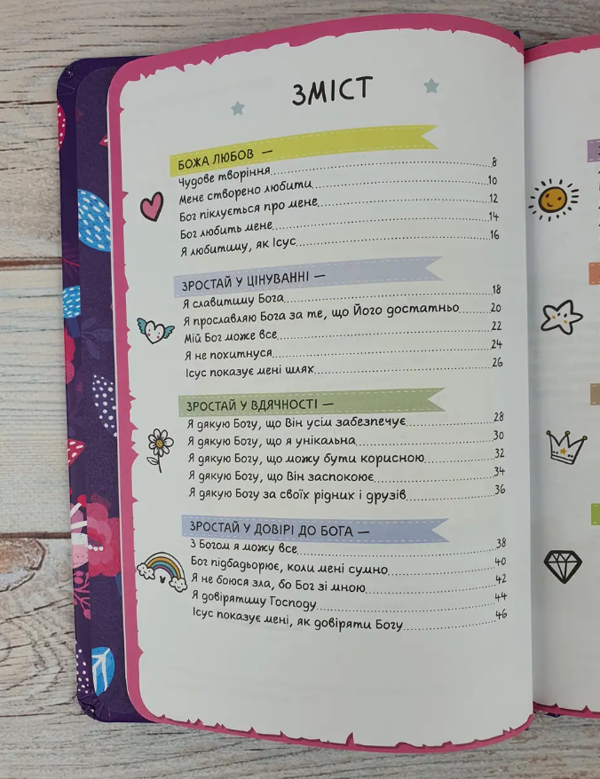 ЗМІСТ
БОЖА ЛЮБОВ —
Чудове творіння 8
Мене створено любити 10
Бог піклується про мене 12
Бог любить мене 14
Я любитиму, як Ісус 16
ЗРОСТАЙ У ЦІНУВАННІ —
Я славитиму Бога 18
Я прославляю Бога за те, що Його достатньо 20
Мій Бог може все 22
Я не похитнуся 24
Ісус показує мені шлях 26
ЗРОСТАЙ У ВДЯЧНОСТІ —
Я дякую Богу, що Він усім забезпечує 28
Я дякую Богу, що я унікальна 30
Я дякую Богу, що можу бути корисною 32
Я дякую Богу, що Він заспокоює 34
Я дякую Богу за своїх рідних і друзів 36
ЗРОСТАЙ У ДОВІРІ ДО БОГА —
З Богом я можу все 38
Бог підбадьорює, коли мені сумно 40
Я не боюся зла, бо Бог зі мною 42
Я довірятиму Господу 44
Ісус показує мені, як довіряти Богу 46